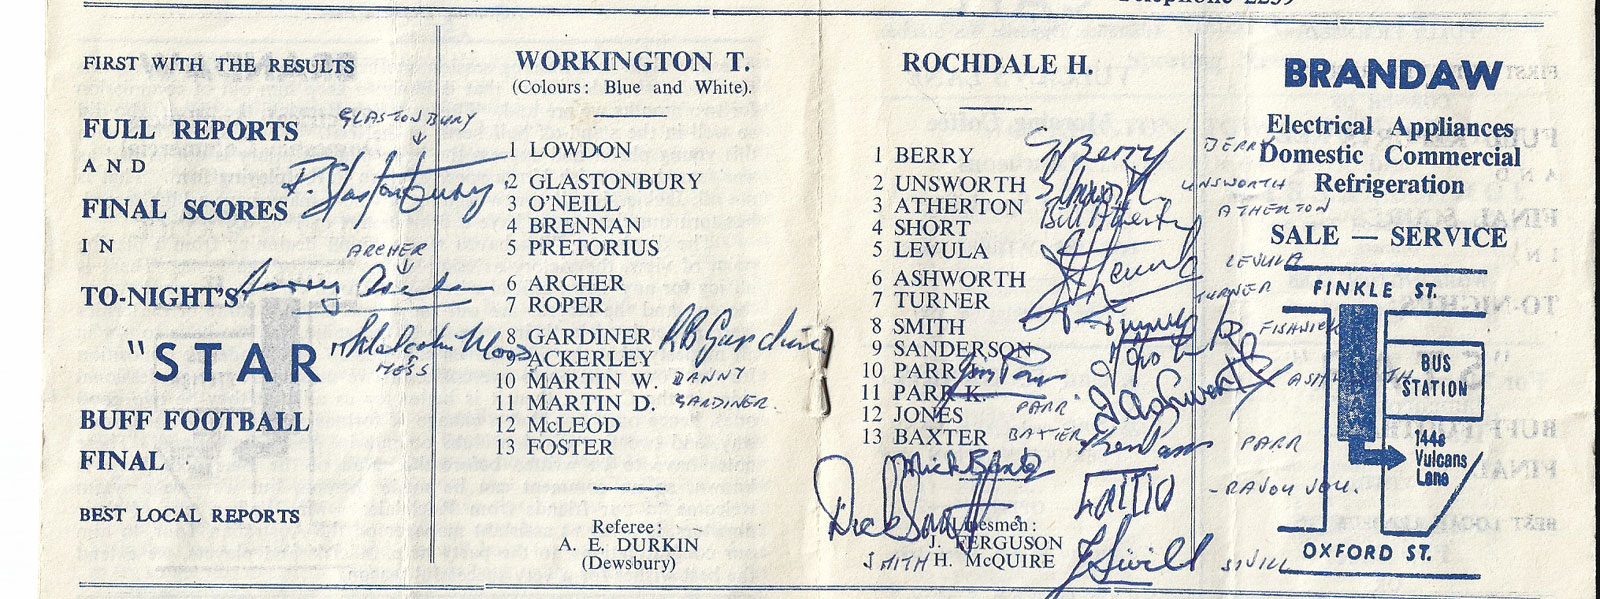 Telephone 2259
FIRST WITH THE RESULTS
FULL REPORTS
AND
FINAL SCORES
IN
TO-NIGHT'S
"STAR"
BUFF FOOTBALL
FINAL
BEST LOCAL REPORTS
GLASTONBURY
R. Glastonbury
ARCHER
Harry Archer
Malcolm Moss
MOSS
WORKINGTON T.
(Colours: Blue and White).
1 LOWDON
2 GLASTONBURY
3 O'NEILL
4 BRENNAN
5 PRETORIUS
6 ARCHER
7 ROPER
8 GARDINER
9 ACKERLEY
10 MARTIN W.
11 MARTIN D.
12 McLEOD
13 FOSTER
RB Gardiner
DANNY
GARDINER
Referee:
A. E. DURKIN
(Dewsbury)
ROCHDALE H.
1 BERRY
2 UNSWORTH
3 ATHERTON
4 SHORT
5 LEVULA
6 ASHWORTH
7 TURNER
8 SMITH
9 SANDERSON
10 PARR
11 PARR K.
12 JONES
13 BAXTER
Berry
BERRY
UNSWORTH
Bill Atherton
ATHERTON
LEVULA
TURNER
FISHWICK
Ashworth
ASHWORTH
Jim Parr
PARR
BAXTER
Ken Parr
PARR
Mick Baxter
Dick Smith
SMITH
Sivill
SIVILL
Linesmen:
J. FERGUSON
H. McQUIRE
BRANDAW
Electrical Appliances
Domestic Commercial
Refrigeration
SALE — SERVICE
FINKLE ST.
BUS
STATION
144a
Vulcans
Lane
OXFORD ST.